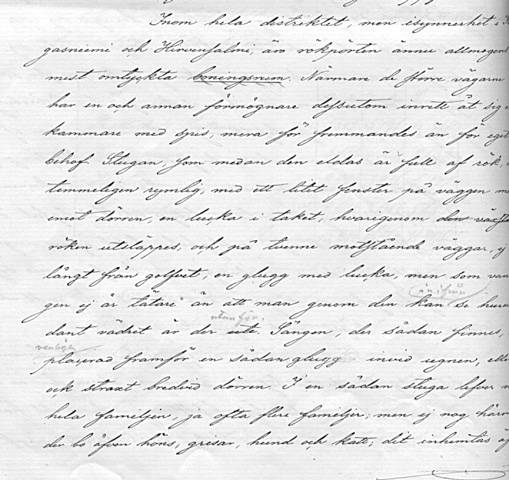 Inom hela distriktet, men isynnerhet i
gasniemi och Hirvensalmi, äro rökpörten ännu allmogens
mest omtyckta boningsrum. Närmare de större vägarne
har en och annan förmögnare dessutom inredt åt sig e
kammare med spis, mera för främmandes än för eget
behof. Stugan, som medan den eldas är full af rök,
temmeligen rymlig, med ett litet fönster på väggen m
emot dörren, en lucka i taket, hvarigenom den
röken utsläppes, och på tvenne motstående väggar, ej
långt från golfvet, en glugg med lucka, men som van
gen ej är tätare än att man genom den kan se huru
dant vädret är der ute. Sängen, der sådan finnes,
utanför.
vanligen
placerad framför en sådan glugg invid ugnen, elle
ock straxt bredvid dörren. I en sådan stuga lefver n
hela familjen, ja ofta flere familjer; men ej nog härm
der bo äfven höns, grisar, hund och katt; dit inhemtas äf